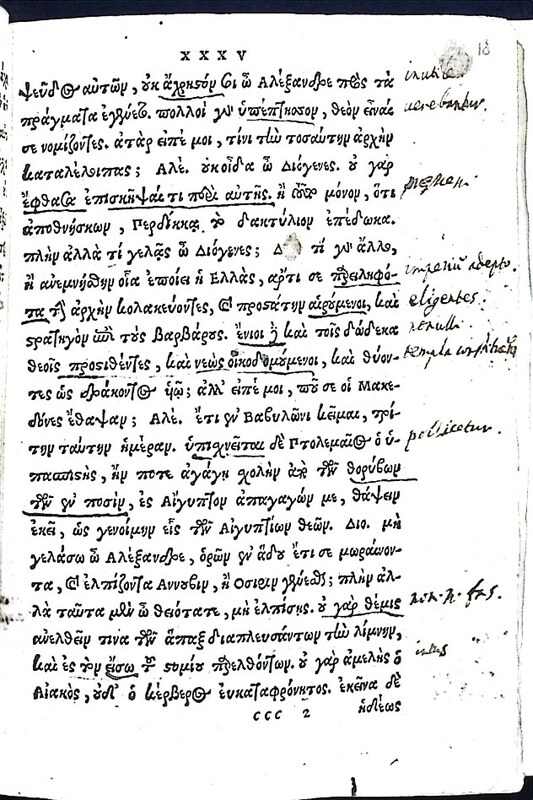 XXXV
18
ψεῦδος αὐτῶν, οὐκ ἄχρηστόν σοι ὦ Ἀλέξανδρε πρὸς τὰ
inutile
πράγματα ἐγένετο. πολλοὶ γοῦν ὑπέπτησσον, θεὸν εἶναί
verebantur.
σε νομίζοντες. ἀτὰρ εἰπέ μοι, τίνι τὴν τοσαύτην ἀρχὴν
καταλέλοιπας; Ἀλέ. οὐκ οἶδα ὦ Διόγενες. οὐ γὰρ
ἔφθασα ἐπισκῆψαί τι περὶ αὐτῆς. ἢ τοῦτο μόνον, ὅτι
ἀποθνήσκων, Περδίκκᾳ τὸν δακτύλιον ἐπέδωκα.
πλὴν ἀλλὰ τί γελᾷς ὦ Διόγενες; Δ τί γοῦν ἄλλο,
ἢ ἀνεμνήσθην οἷα ἐποίει ἡ Ἑλλάς, ἄρτι σε παρειληφό-
imperiū adepto.
τα τὴν ἀρχὴν κολακεύοντες, καὶ προστάτην αἱρούμενοι, καὶ
eligentes.
στρατηγὸν ἐπὶ τοὺς βαρβάρους. ἔνιοι δὲ καὶ τοῖς δώδεκα
nonulli.
θεοῖς προστιθέντες, καὶ νεὼς οἰκοδομούμενοι, καὶ θύον-
τες ὡς δράκοντος υἱῷ; ἀλλ' εἰπέ μοι, ποῦ σε οἱ Μακε-
δόνες ἔθαψαν; Ἀλέ. ἔτι ἐν Βαβυλῶνι κεῖμαι, τρί-
την ταύτην ἡμέραν. ὑπισχνεῖται δὲ Πτολεμαῖος ὁ ὑ-
pollicetur.
πασπιστής, ἤν ποτε ἀγάγῃ σχολὴν ἀπὸ τῶν θορύβων
τῶν ἐν ποσίν, ἐς Αἴγυπτον ἀπαγαγών με, θάψειν
ἐκεῖ, ὡς γενοίμην εἷς τῶν Αἰγυπτίων θεῶν. Διο. μὴ
γελάσω ὦ Ἀλέξανδρε, ὁρῶν ἐν ᾅδου ἔτι σε μωραίνον-
τα, καὶ ἐλπίζοντα Ἄννουβιν, ἢ Ὄσιριν γενέσθαι; πλὴν ἀλ-
λὰ ταῦτα μὲν ὦ θειότατε, μὴ ἐλπίσῃς. οὐ γὰρ θέμις
non .n. fas.
ἀνελθεῖν τινα τῶν ἅπαξ διαπλευσάντων τὴν λίμνην,
καὶ ἐς τὸ εἴσω τοῦ στομίου παρελθόντων. οὐ γὰρ ἀμελὴς ὁ
intus
Αἰακός, οὐδ' ὁ κέρβερος εὐκαταφρόνητος. ἐκεῖνα δὲ
CCC 2 ἡδέως